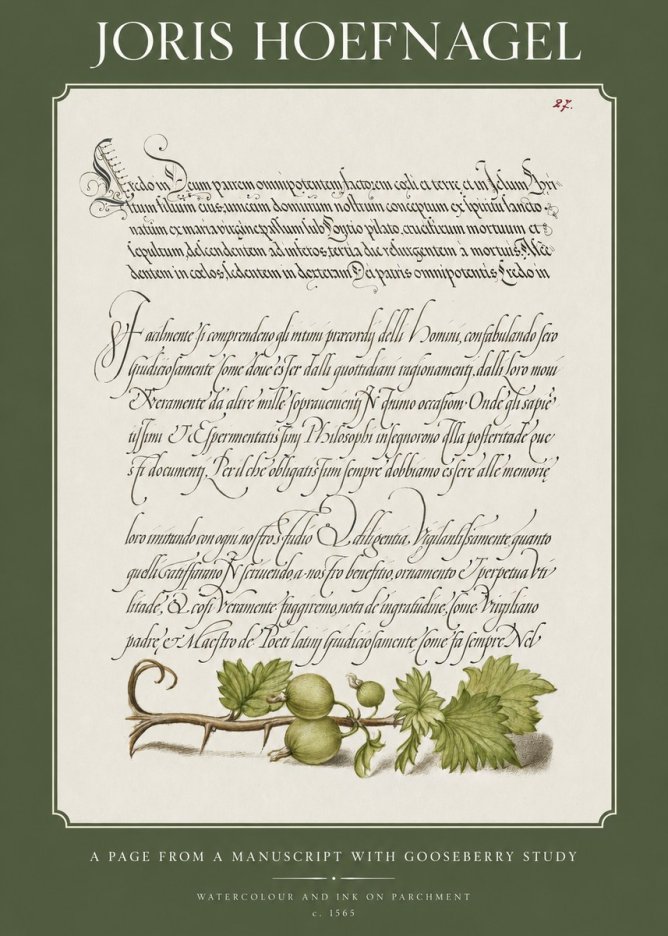 JORIS HOEFNAGEL
27.
Credo in Deum patrem omnipotentem, factorem cœli et terre, et in Jesum Chri-
stum filium eius, unicum dominum nostrum conceptum ex spiritu sancto
natum ex maria virgine passum sub Pontio pilato, crucifixum mortuum et
sepultum, descendentem ad inferos, tertia die resurgentem a mortuis, Asce
dentem in cœlos, sedentem in dexteram Dei patris omnipotentis, Credo in
Facilmente si comprendeno gli intimi præcordij delli Homini, confabulando sero
Giudiciosamente Come doue esser dalli quottidiani ragionamenti, dalli Loro moui
Et Veramente da altre mille sopravenienti IN quino occasioni. Onde gli sapie
tissimi Et Espermentatissimi Philosophi insegnorono Alla posteritade que
sti documenti. Per il che obligatissimi sempre dobbiamo essere alle memorie
loro imitando con ogni nostro Studio Et diligentia, Vigilantissamente quanto
quelli scriuendo, a nostro benefitio, ornamento Et perpetua Vti
litade, Et cosi Veramente fuggiremo, nota de ingratudine, Come Virgiliano
padre, et Maestro de Poeti latini Giudiciosamente Come fa sempre Nel
A PAGE FROM A MANUSCRIPT WITH GOOSEBERRY STUDY
WATERCOLOUR AND INK ON PARCHMENT
c. 1565